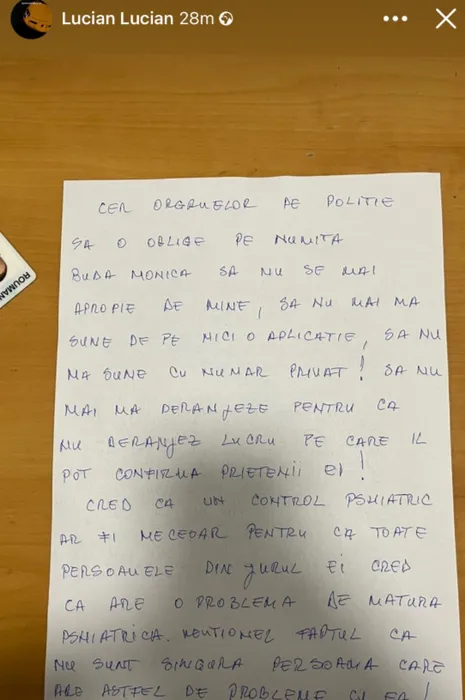 Lucian Lucian 28m
ROUMAN
CER ORGANELOR DE POLITIE
SA O OBLIGE PE NUMITA
BUDA MONICA SA NU SE MAI
APROPIE DE MINE, SA NU MAI MA
SUNE DE PE NICI O APLICATIE, SA NU
MA SUNE CU NUMAR PRIVAT! SA NU
MAI MA DERANJEZE PENTRU CA
NU DERANJEZ LUCRU PE CARE IL
POT CONFIRMA PRIETENII EI!
CRED CA UN CONTROL PSHIATRIC
AR FI NECECAR PENTRU CA TOATE
PERSOANELE DIN JURUL EI CRED
CA ARE O PROBLEMA DE NATURA
PSHIATRICA. MENTIONEZ FAPTUL CA
NU SUNT SINGURA PERSOANA CARE
ARE ASTFEL DE PROBLEME CU EA!